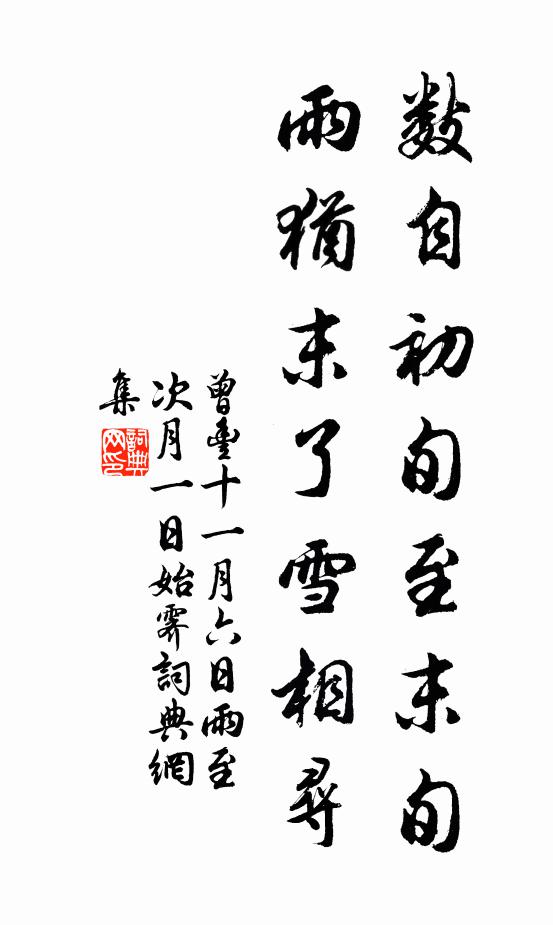 數自初旬至末旬
雨猶未了雪相尋
曾豐十一月六日雨至
次月一日始霽詞典網
集
詞典
网印